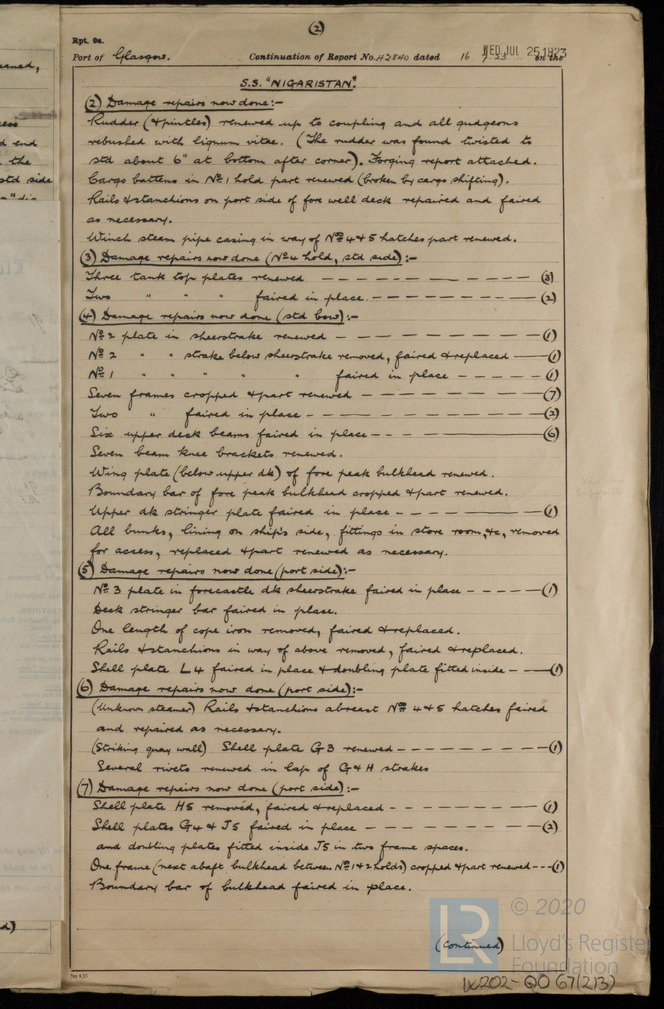 (2)
Rpt. 9a.
Port of Glasgow. Continuation of Report No. 42840 dated 16 on the
WED. JUL 25 1923
S.S. "NIGARISTAN".
(2) Damage repairs now done:-
Rudder (& pintles) renewed up to coupling and all gudgeons
rebushed with lignum vitae. (The rudder was found twisted to
std about 6" at bottom after corner). Forging report attached.
Cargo battens in No. 1 hold part renewed (broken by cargo shifting).
Rails & stanchions on port side of fore well deck repaired and faired
as necessary.
Winch steam pipe casing in way of Nos 4 & 5 hatches part renewed.
(3) Damage repairs now done (No 4 hold, std side):-
Three tank top plates renewed — — — — — — (3)
Two " " " faired in place — — — — — — (2)
(4) Damage repairs now done (std bow):-
No 2 plate in sheerstrake renewed — — — — — — (1)
No 2 " " strake below sheerstrake removed, faired & replaced — (1)
No 1 " " " " " faired in place — — — — (1)
Seven frames cropped & part renewed — — — — — — (7)
Two " faired in place — — — — — — (2)
Six upper deck beams faired in place — — — — — — (6)
Seven beam knee brackets renewed.
Wing plate (below upper dk) of fore peak bulkhead renewed.
Boundary bar of fore peak bulkhead cropped & part renewed.
Upper dk stringer plate faired in place — — — — — — (1)
All bunks, lining on ship's side, fittings in store room, &c, removed
for access, replaced & part renewed as necessary.
(5) Damage repairs now done (port side):-
No 3 plate in forecastle dk sheerstrake faired in place — — — — (1)
Deck stringer bar faired in place.
One length of cope iron removed, faired & replaced.
Rails & stanchions in way of above removed, faired & replaced.
Shell plate L4 faired in place & doubling plate fitted inside — — (1)
(6) Damage repairs now done (port side):-
(Unknown steamer) Rails & stanchions abreast Nos 4 & 5 hatches faired
and repaired as necessary.
(Striking quay wall) Shell plate G3 renewed — — — — — — (1)
Several rivets renewed in lap of G & H strakes
(7) Damage repairs now done (port side):-
Shell plate H5 removed, faired & replaced — — — — — — (1)
Shell plates G4 & J5 faired in place — — — — — — (2)
and doubling plates fitted inside J5 in two frame spaces.
One frame (next abaft bulkhead between Nos 1 & 2 holds) cropped & part renewed — — (1)
Boundary bar of bulkhead faired in place.
(continued)
© 2020
LR
Lloyd's Register
Foundation
W202-0067(2/3)